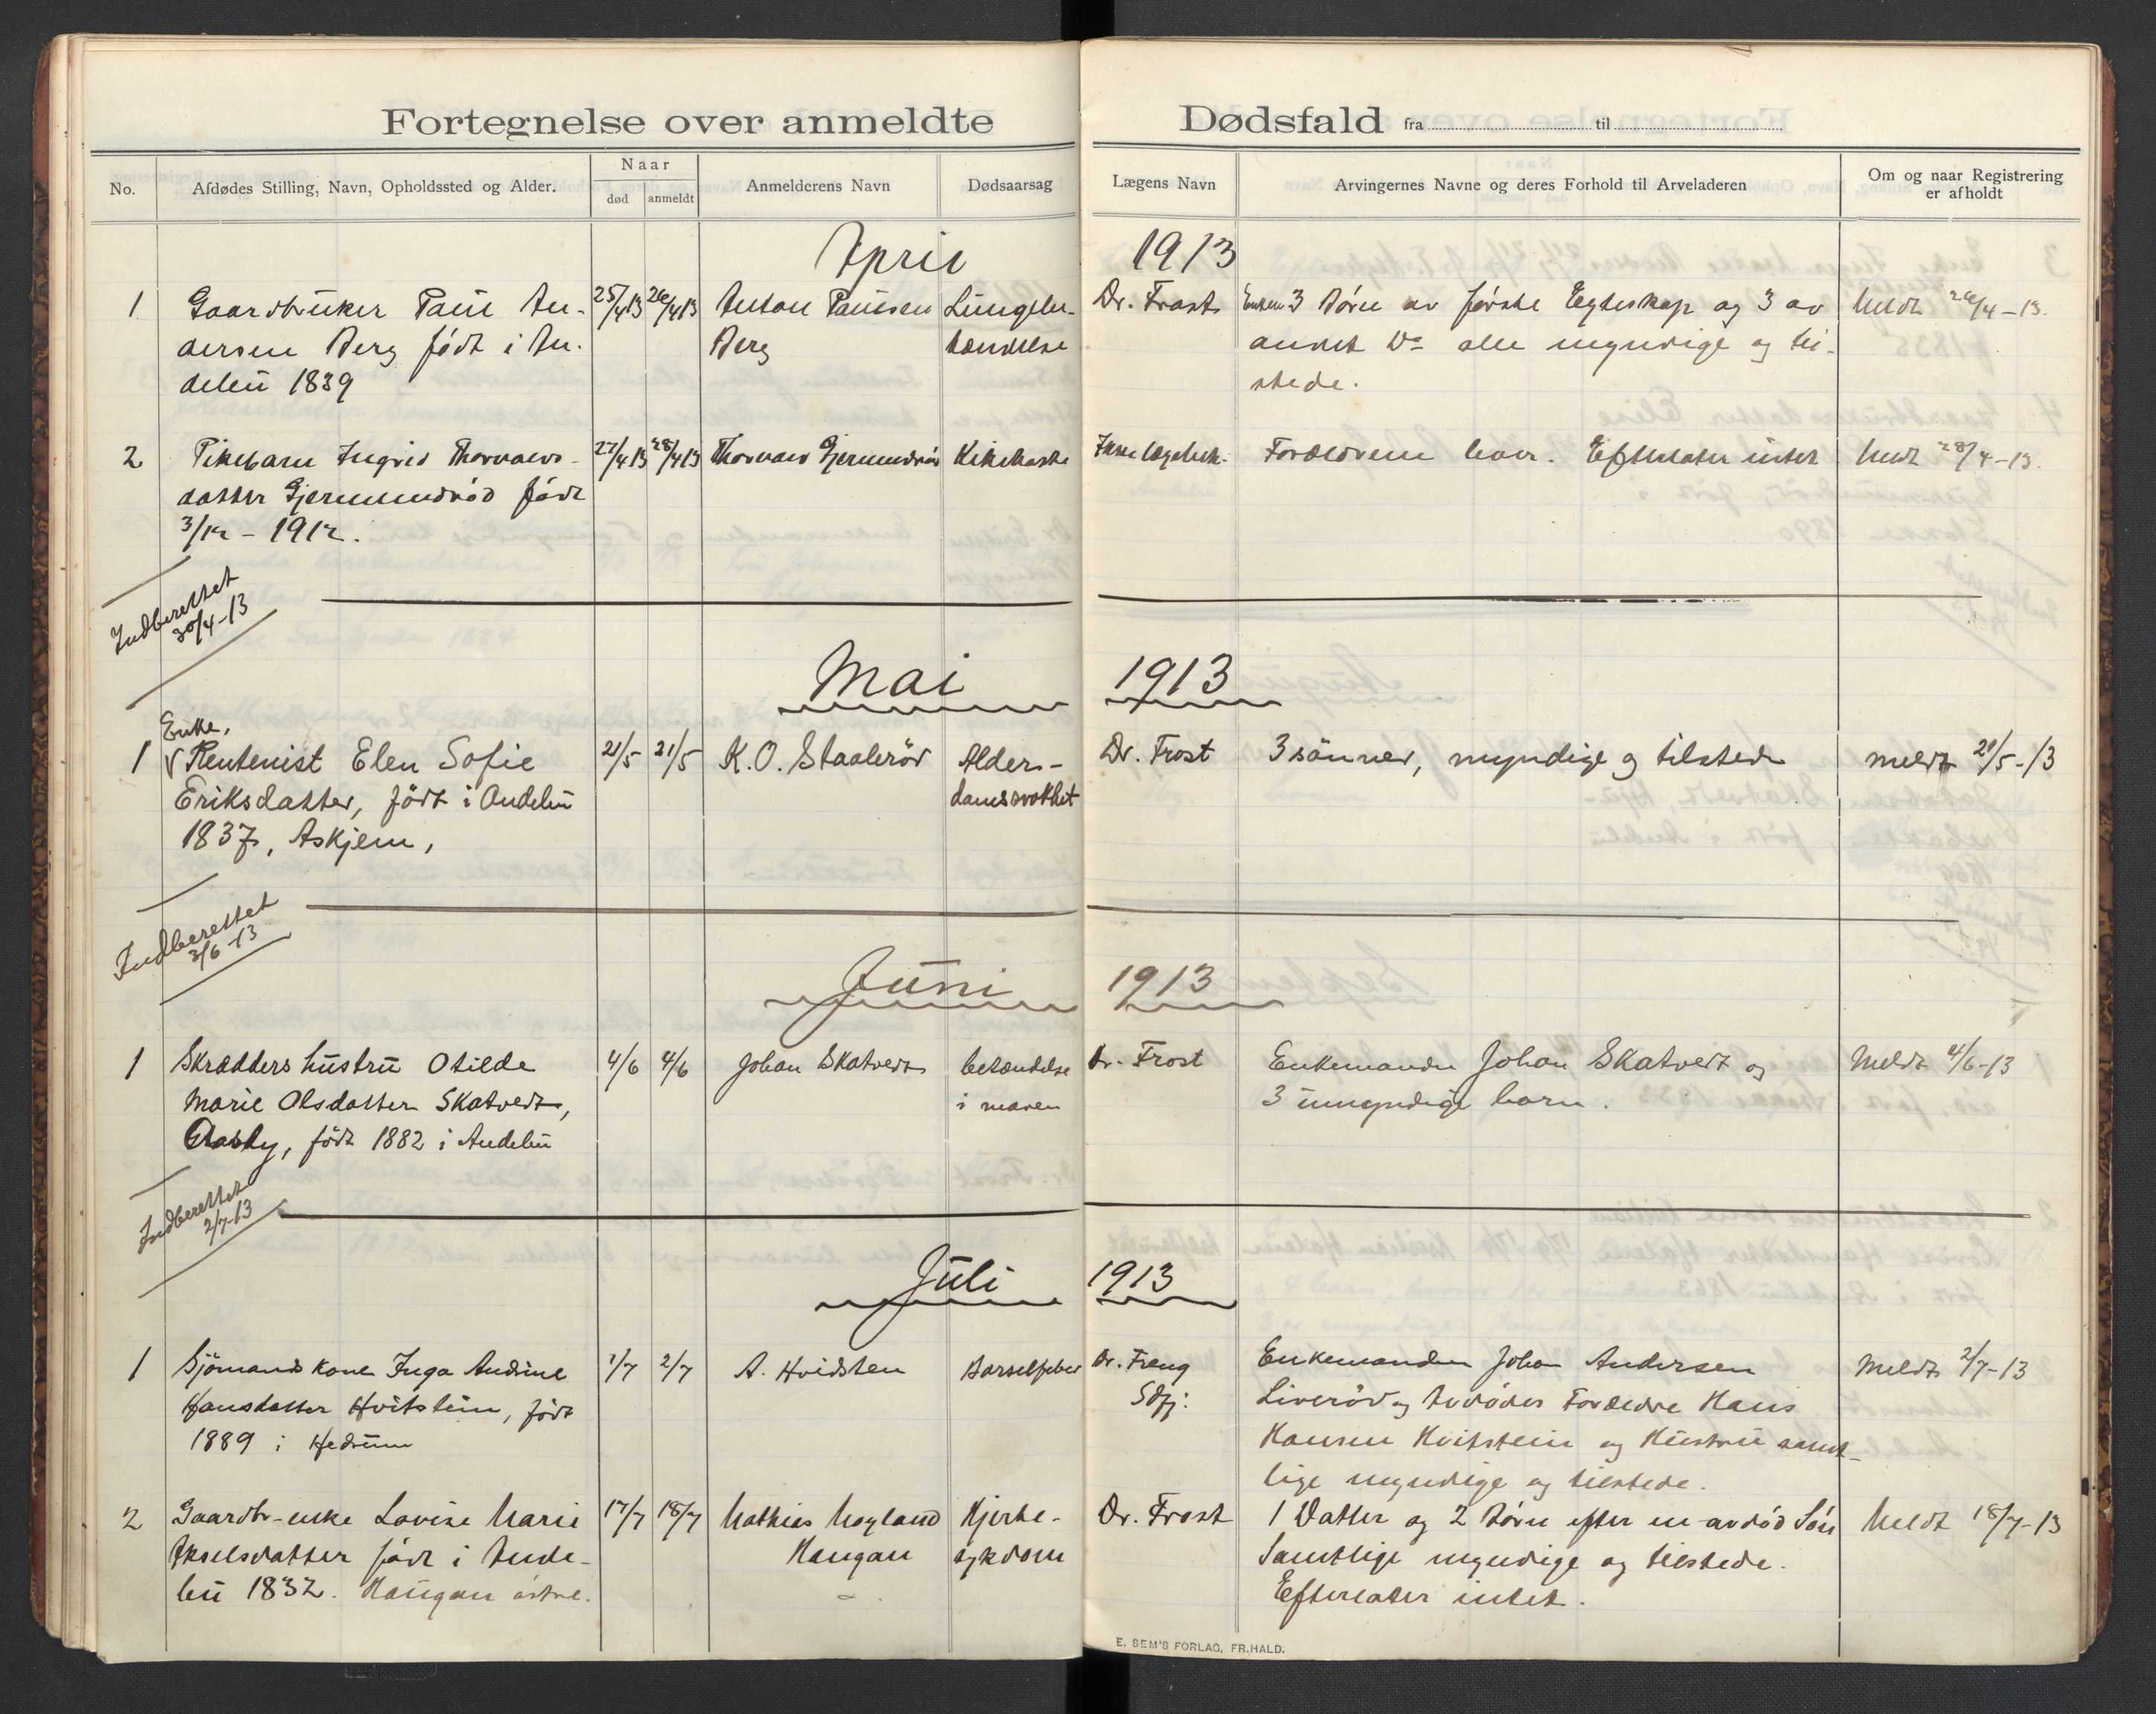 Fortegnelse over anmeldte Dødsfald fra til
No.
Afdødes Stilling, Navn, Opholdssted og Alder.
Naar
død anmeldt
Anmelderens Navn
Dødsaarsag
Lægens Navn
Arvingernes Navne og deres Forhold til Arveladeren
Om og naar Registrering
er afholdt
April 1913
1
Gaardbruker Paul An-
dersen Berg född i An-
debu 1839
25/4 13 26/4 13
Anton Paulsen
Berg
Lungebe-
tændelse
Dr. Frost
Enken 3 Børn av første Egteskap og 3 av
andet Do alle myndige og til-
stede.
Meldt 26/4-13.
2
Pikebarn Ingrid Thorvalds-
datter Gjermundrød född
3/12 - 1912.
27/4 13 28/4 13
Thorvald Gjermundrød
Kikhoste
Ikke lægebeh.
Forældrene lever. Efterlater intet
Meldt 28/4-13.
Indberettet
30/4-13
Mai 1913
1
Enke,
Rentenist Elen Sofie
Eriksdatter, födt i Andebu
1837, Askjem,
21/5 21/5
K.O. Staalerød
Alder-
domssvakhet
Dr. Frost
3 sönner, myndige og tilstede
meldt 21/5-13
Indberettet
3/6-13
Juni 1913
1
Skrædders hustru Otilde
Marie Olsdatter Skatvedt,
födt 1882 i Andebu
4/6 4/6
Johan Skatvedt
betændelse
i maven
Dr. Frost
Enkemanden Johan Skatvedt og
3 umyndige barn.
Meldt 4/6-13
Indberettet
2/7-13
Juli 1913
1
Sjömands kone Inga Andrine
Hansdatter Hvitstein, födt
1889 i Hedrum
1/7 2/7
A. Hvidsten
Barselfeber
Dr. Freng
Sdfj:
Enkemanden Johan Andersen
Liverød og Avdødes Forældre Hans
Hansen Hvitstein og Hustru samt-
lige myndige og tilstede.
Meldt 2/7-13
2
Gaardbr-enke Lovise Marie
Akselsdatter född i Ande-
bu 1832. Haugan östre.
17/7 18/7
Mathias Møyland
Haugan
Hjerte-
sykdom
Dr. Frost
1 Datter og 2 Børn efter en avdød Søn
Samtlige myndige og tilstede.
Efterlater intet.
Meldt 18/7-13
E. SEM'S FORLAG, FR.HALD.